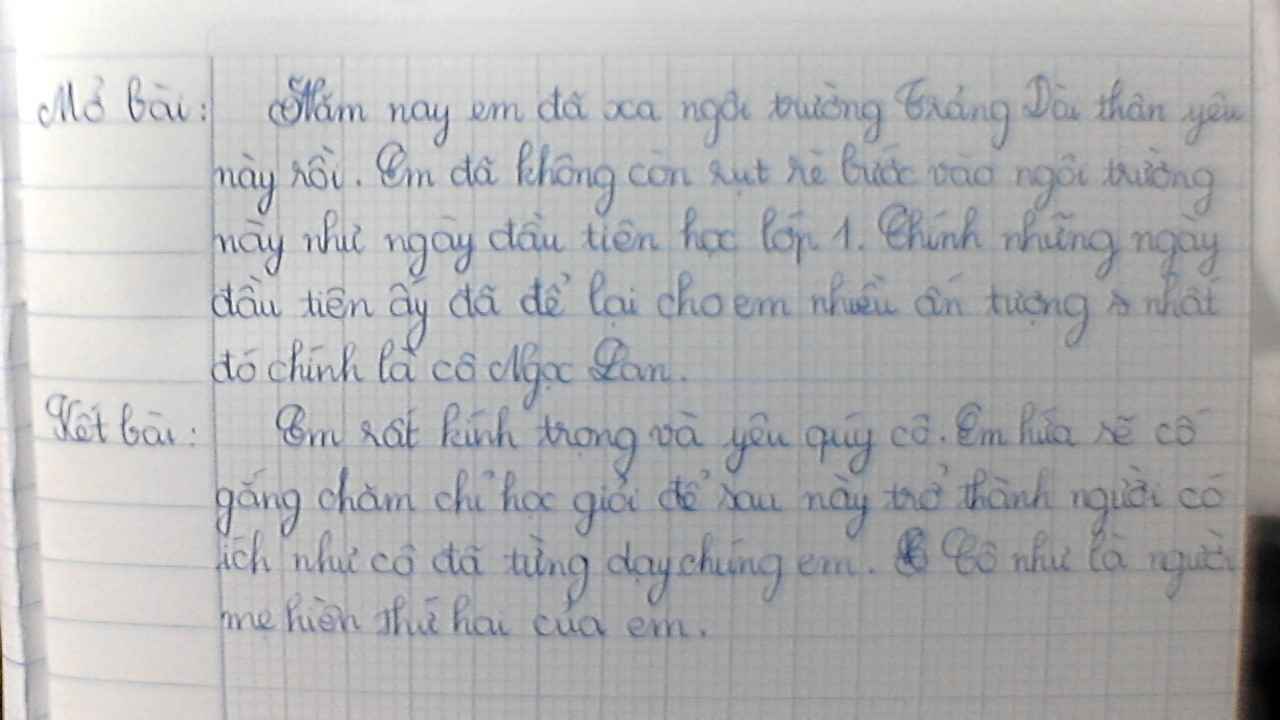 Mở bài: Năm nay em đã xa ngôi trường Trảng Dài thân yêu
này rồi. Em đã không còn rụt rè bước vào ngôi trường
này như ngày đầu tiên học lớp 1. Chính những ngày
đầu tiên ấy đã để lại cho em nhiều ấn tượng nhất
đó chính là cô Ngọc Lan.
Kết bài: Em rất kính trọng và yêu quý cô. Em hứa sẽ cố
gắng chăm chỉ học giỏi để sau này trở thành người có
ích như cô đã từng dạy chúng em. Cô như là người
mẹ hiền thứ hai của em.